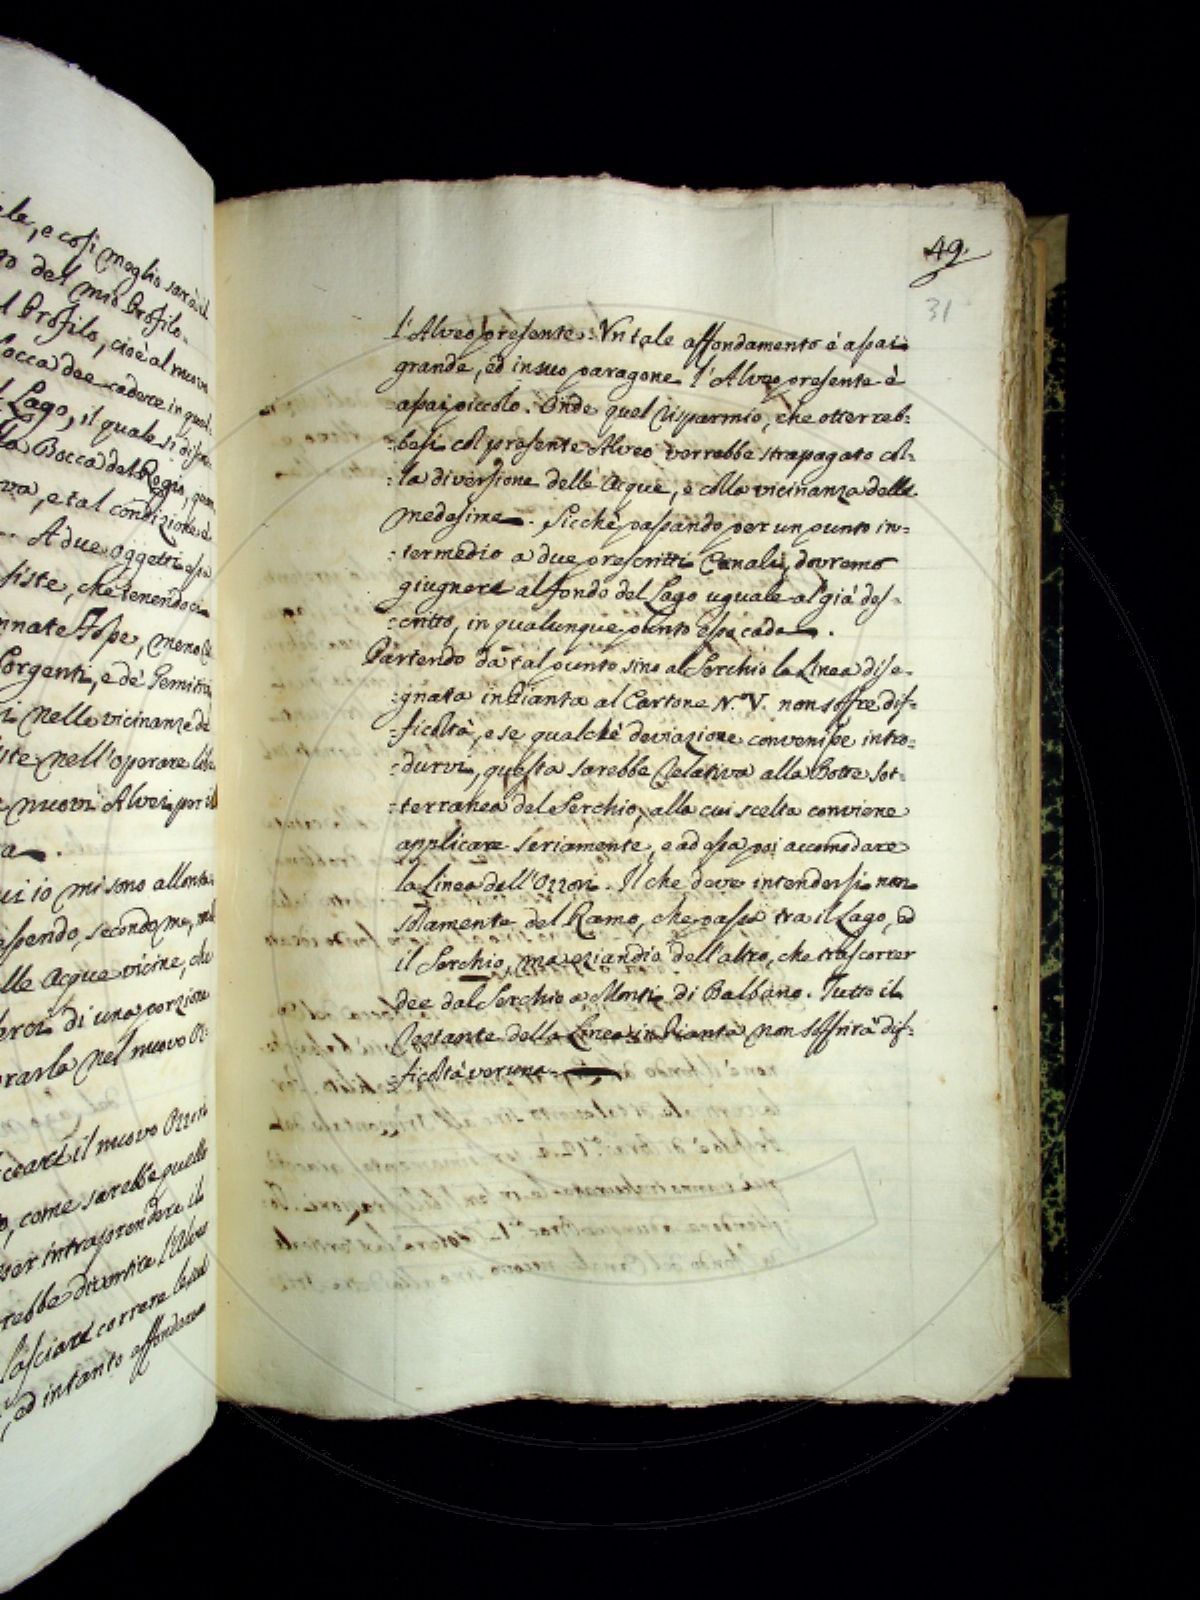 ele, e così meglio sarà il
go del mio Profilo.
l Profilo, cioè al nuovo
Bocca dee cadere in quel
l Lago, il quale si
lla Bocca del Regio,
va, e tal condizione è
A due oggetti essa
siste, che tenendoci
nnate Fosse, meno
Sorgenti, e de' Gemitivi
i nelle vicinanze de
iste nell'operare
e nuovi Alvei per il
a.
ui io mi sono allonta
spendo, secondo me,
lle Acque vicine, che
di una porzione
rarla nel nuovo
il nuovo Ozzori
o, come sarebbe quello
per intraprendere il
rebbe divertire l'Alveo
lasciare correre le
, ed intanto affondare
49.
31
l'Alveo presente. Un tale affondamento è assai
grande, ed in suo paragone l'Alveo presente è
assai piccolo. Onde quel risparmio, che otterreb-
besi col presente Alveo verrebbe strapagato col-
la diversione delle Acque, e colla vicinanza delle
medesime. Sicchè passando per un punto in-
termedio a due prescritti Canali, dovremo
giugnere al fondo del Lago uguale al già des-
critto, in qualunque punto essa cada.
Partendo da tal punto sino al Serchio la Linea dise-
gnata in Pianta al Cartone N.º V. non soffre dif-
ficoltà, e se qualche deviazione convenisse intro-
durvi, questa sarebbe relativa alla Botte sot-
terranea del Serchio, alla cui scelta conviene
applicare seriamente, e ad essa poi accomodare
la Linea dell'Ozzori. Il che deve intendersi non
solamente del Ramo, che passa tra il Lago, ed
il Serchio, ma eziandio dell'altro, che trascorrer
dee dal Serchio a Monti di Balbano. Tutto il
restante della Linea in Pianta non soffrirà dif-
ficoltà veruna.